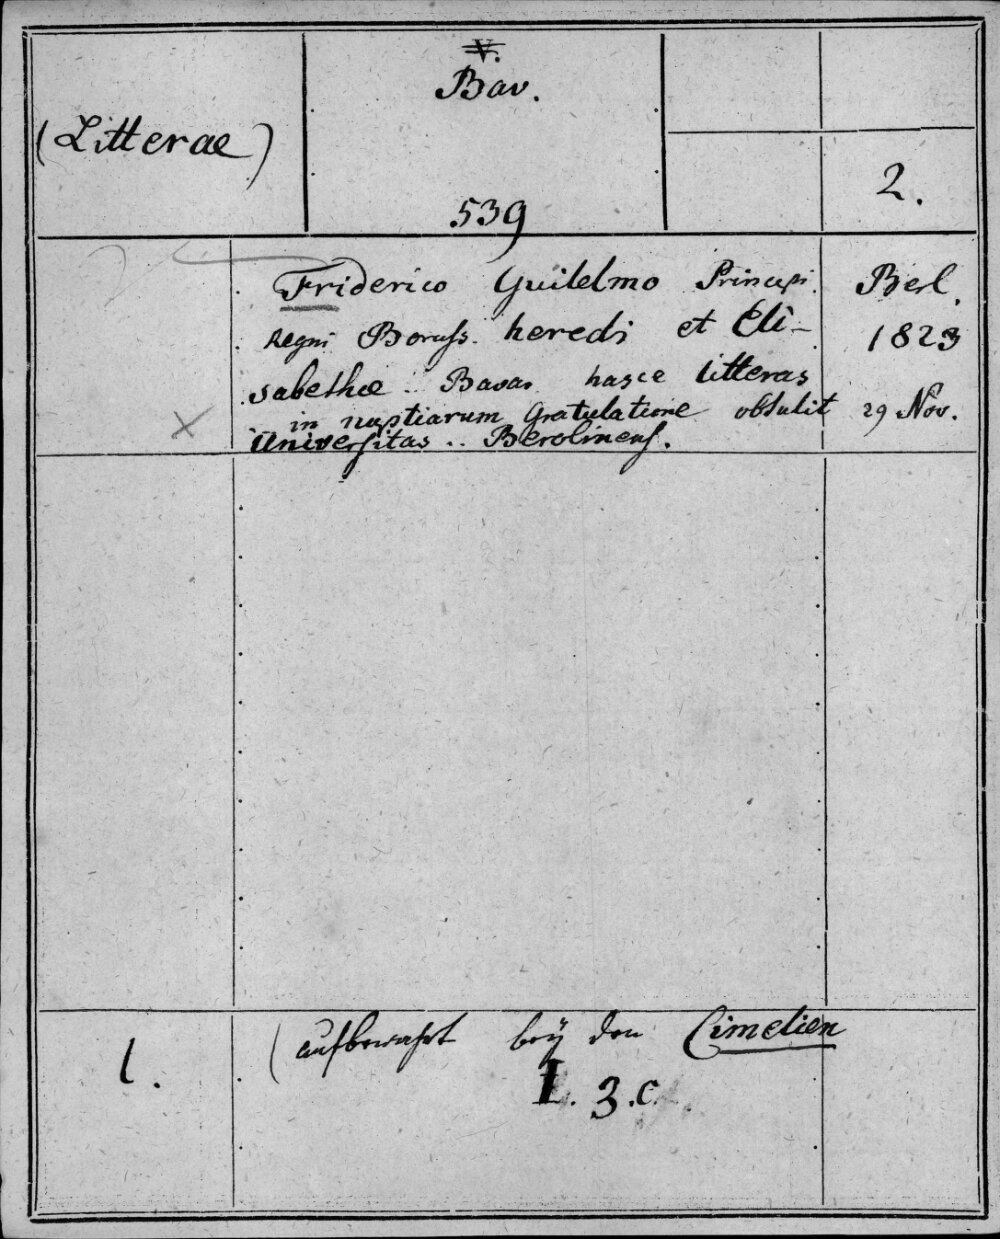 V.
Bav.
(Litterae)
2.
539
Friderico Guilelmo Principi
regni Boruss. heredi et Eli-
sabethae .. Bavar. hasce litteras
in nuptiarum gratulatione obtulit
Universitas .. Berolinens.
Berl.
1823
29 Nov.
1.
(aufbewahrt bey den Cimelien
I. 3.c.